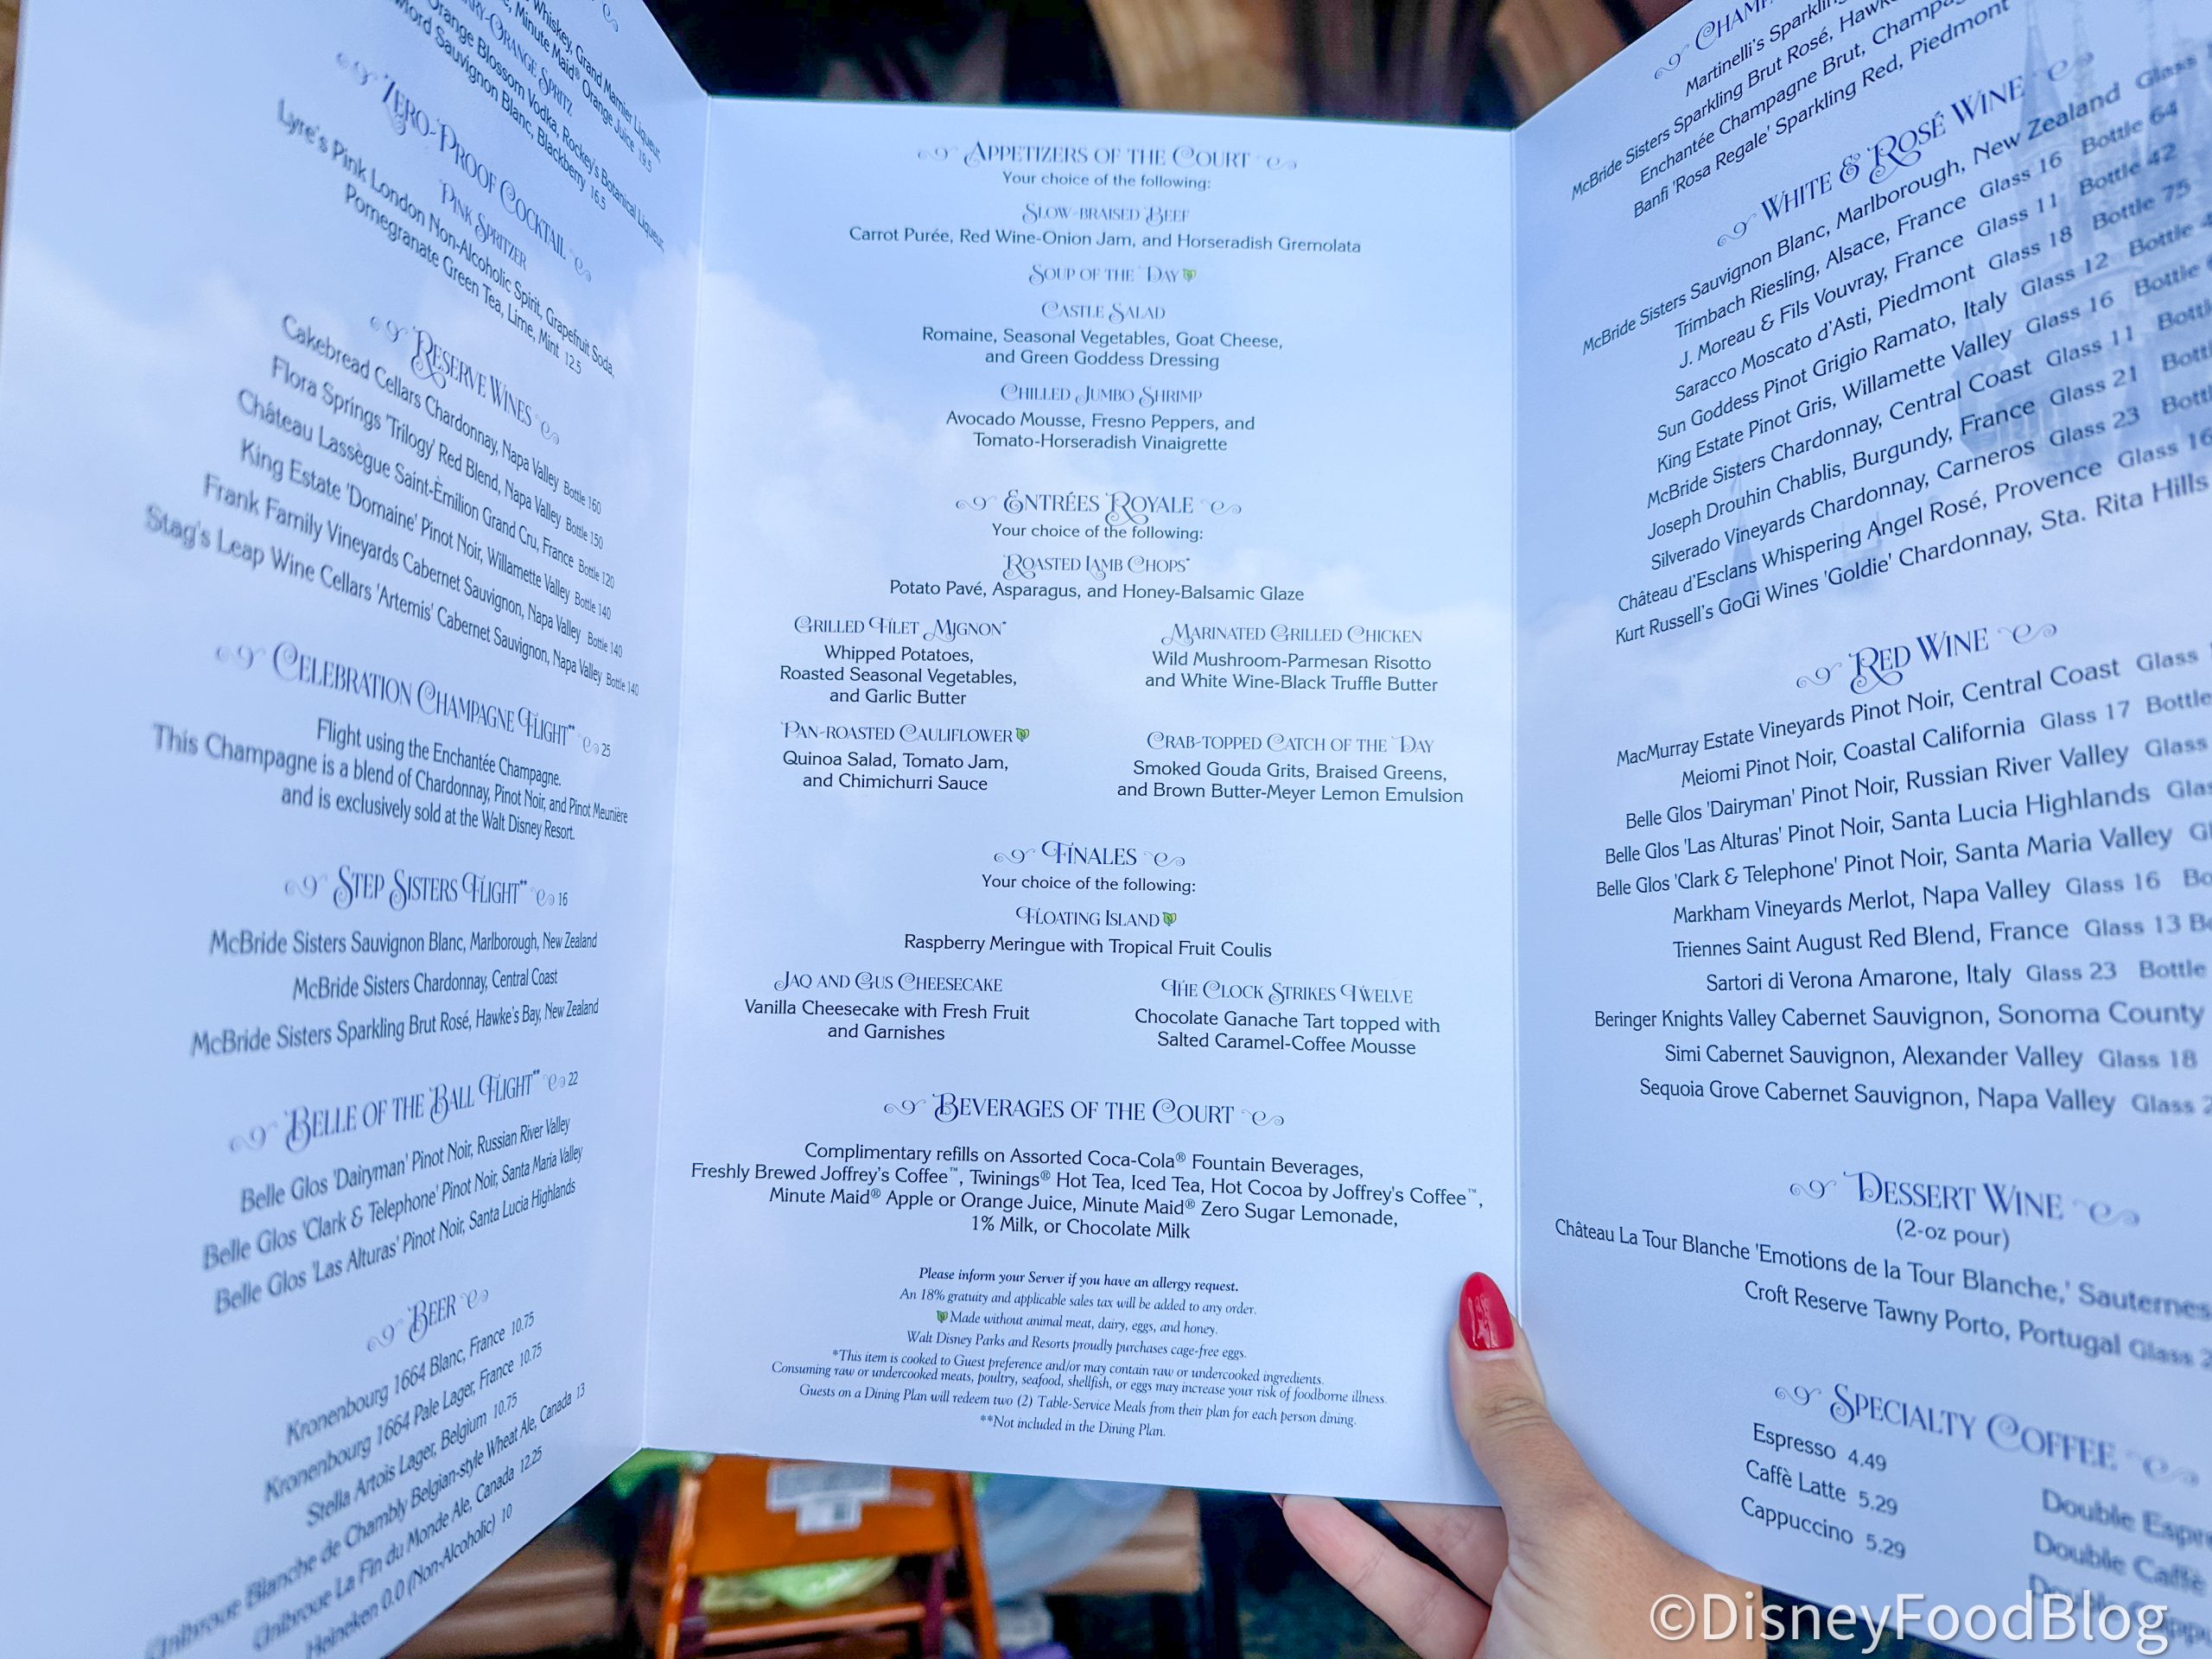 Whiskey, Grand Marnier Liqueur,
Minute Maid® Orange Juice 19.5
-Orange Spritz
Orange Blossom Vodka, Rockey's Botanical Liqueur,
Sauvignon Blanc, Blackberry 16.5
Zero-Proof Cocktail
Pink Spritzer
Lyre's Pink London Non-Alcoholic Spirit, Grapefruit Soda,
Pomegranate Green Tea, Lime, Mint 12.5
Reserve Wines
Cakebread Cellars Chardonnay, Napa Valley Bottle 160
Flora Springs 'Trilogy' Red Blend, Napa Valley Bottle 150
Château Lassègue Saint-Èmilion Grand Cru, France Bottle 120
King Estate 'Domaine' Pinot Noir, Willamette Valley Bottle 140
Frank Family Vineyards Cabernet Sauvignon, Napa Valley Bottle 140
Stag's Leap Wine Cellars 'Artemis' Cabernet Sauvignon, Napa Valley Bottle 140
Celebration Champagne Flight** 25
Flight using the Enchantée Champagne.
This Champagne is a blend of Chardonnay, Pinot Noir, and Pinot Meunière
and is exclusively sold at the Walt Disney Resort.
Step Sisters Flight** 16
McBride Sisters Sauvignon Blanc, Marlborough, New Zealand
McBride Sisters Chardonnay, Central Coast
McBride Sisters Sparkling Brut Rosé, Hawke's Bay, New Zealand
Belle of the Ball Flight** 22
Belle Glos 'Dairyman' Pinot Noir, Russian River Valley
Belle Glos 'Clark & Telephone' Pinot Noir, Santa Maria Valley
Belle Glos 'Las Alturas' Pinot Noir, Santa Lucia Highlands
Beer
Kronenbourg 1664 Blanc, France 10.75
Kronenbourg 1664 Pale Lager, France 10.75
Stella Artois Lager, Belgium 10.75
Unibroue Blanche de Chambly Belgian-style Wheat Ale, Canada 13
Unibroue La Fin du Monde Ale, Canada 12.25
Heineken 0.0 (Non-Alcoholic) 10
Appetizers of the Court
Your choice of the following:
Slow-braised Beef
Carrot Purée, Red Wine-Onion Jam, and Horseradish Gremolata
Soup of the Day
Castle Salad
Romaine, Seasonal Vegetables, Goat Cheese,
and Green Goddess Dressing
Chilled Jumbo Shrimp
Avocado Mousse, Fresno Peppers, and
Tomato-Horseradish Vinaigrette
Entrées Royale
Your choice of the following:
Roasted Lamb Chops*
Potato Pavé, Asparagus, and Honey-Balsamic Glaze
Grilled Filet Mignon*
Whipped Potatoes,
Roasted Seasonal Vegetables,
and Garlic Butter
Marinated Grilled Chicken
Wild Mushroom-Parmesan Risotto
and White Wine-Black Truffle Butter
Pan-roasted Cauliflower
Quinoa Salad, Tomato Jam,
and Chimichurri Sauce
Crab-topped Catch of the Day
Smoked Gouda Grits, Braised Greens,
and Brown Butter-Meyer Lemon Emulsion
Finales
Your choice of the following:
Floating Island
Raspberry Meringue with Tropical Fruit Coulis
Jaq and Gus Cheesecake
Vanilla Cheesecake with Fresh Fruit
and Garnishes
The Clock Strikes Twelve
Chocolate Ganache Tart topped with
Salted Caramel-Coffee Mousse
Beverages of the Court
Complimentary refills on Assorted Coca-Cola® Fountain Beverages,
Freshly Brewed Joffrey's Coffee™, Twinings® Hot Tea, Iced Tea, Hot Cocoa by Joffrey's Coffee™,
Minute Maid® Apple or Orange Juice, Minute Maid® Zero Sugar Lemonade,
1% Milk, or Chocolate Milk
Please inform your Server if you have an allergy request.
An 18% gratuity and applicable sales tax will be added to any order.
Made without animal meat, dairy, eggs, and honey.
Walt Disney Parks and Resorts proudly purchases cage-free eggs.
*This item is cooked to Guest preference and/or may contain raw or undercooked ingredients.
Consuming raw or undercooked meats, poultry, seafood, shellfish, or eggs may increase your risk of foodborne illness.
Guests on a Dining Plan will redeem two (2) Table-Service Meals from their plan for each person dining.
**Not included in the Dining Plan.
Martinelli's
McBride Sisters Sparkling Brut Rosé,
Enchantée Champagne Brut,
Banfi 'Rosa Regale' Sparkling Red, Piedmont
White & Rosé Wine
McBride Sisters Sauvignon Blanc, Marlborough, New Zealand Glass
Trimbach Riesling, Alsace, France Glass 16 Bottle 64
J. Moreau & Fils Vouvray, France Glass 11 Bottle 42
Saracco Moscato d'Asti, Piedmont Glass 18 Bottle 75
Sun Goddess Pinot Grigio Ramato, Italy Glass 12 Bottle
King Estate Pinot Gris, Willamette Valley Glass 16 Bottle
McBride Sisters Chardonnay, Central Coast Glass 11
Joseph Drouhin Chablis, Burgundy, France Glass 21
Silverado Vineyards Chardonnay, Carneros Glass 23
Château d'Esclans Whispering Angel Rosé, Provence Glass 16
Kurt Russell's GoGi Wines 'Goldie' Chardonnay, Sta. Rita Hills
Red Wine
MacMurray Estate Vineyards Pinot Noir, Central Coast Glass
Meiomi Pinot Noir, Coastal California Glass 17 Bottle
Belle Glos 'Dairyman' Pinot Noir, Russian River Valley Glass
Belle Glos 'Las Alturas' Pinot Noir, Santa Lucia Highlands
Belle Glos 'Clark & Telephone' Pinot Noir, Santa Maria Valley
Markham Vineyards Merlot, Napa Valley Glass 16
Triennes Saint August Red Blend, France Glass 13
Sartori di Verona Amarone, Italy Glass 23 Bottle
Beringer Knights Valley Cabernet Sauvignon, Sonoma County
Simi Cabernet Sauvignon, Alexander Valley Glass 18
Sequoia Grove Cabernet Sauvignon, Napa Valley Glass
Dessert Wine
(2-oz pour)
Château La Tour Blanche 'Emotions de la Tour Blanche,' Sauternes
Croft Reserve Tawny Porto, Portugal Glass
Specialty Coffee
Espresso 4.49
Caffè Latte 5.29
Cappuccino 5.29
Double
Double Caffè
©DisneyFoodBlog